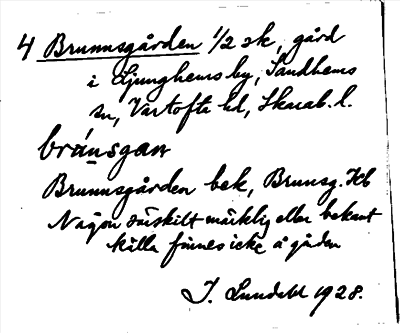 4 Brunnsgården 1/2 sk, gård
i Ljunghems by, Sandhems
sn, Vartofta hd, Skarab. l.
brúnsgan
Brunnsgården bek, Brunsg. Kb
Någon särskilt märklig eller bekant
källa finnes icke å gården
J. Lundahl 1928.